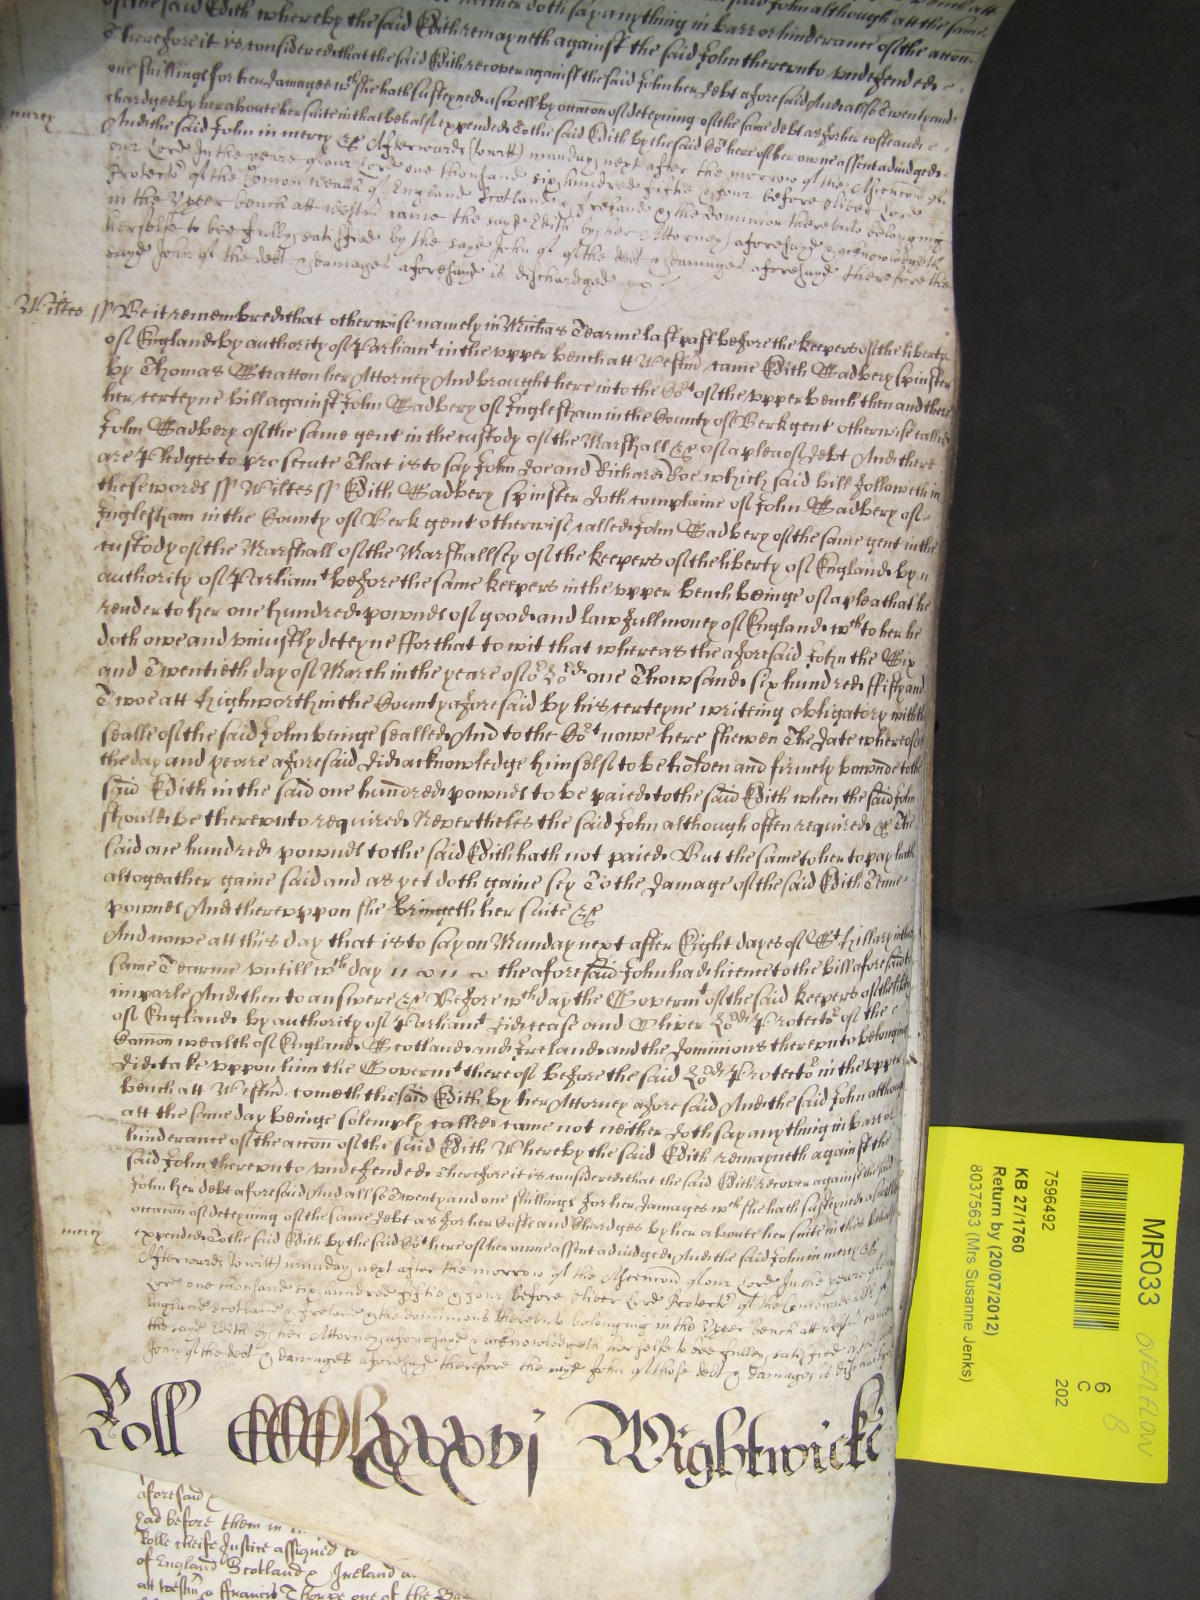 of the said Edith whereby the said Edith remayneth against the said John thereunto undefended
neither doth say anything in barr or hinderance of the accon
Therefore it is considered that the said Edith recover against the said John her debt aforesaid And alsoe Twenty and
one shillings for her damages wch she hath susteyned aswell by occacon of deteyning of the same debt as for her costes and
chardges by her aboute her suite in that behalf expended To the said Edith by the said Cort here of her owne assent adiudged
mercy
And the said John in mercy &c Afterwards (to witt) munday next after the morrow of the Ascencon of
our Lord In the yeare of our Lord one thousand six hundred fiftie & four before Oliver Lord
Protector of the Comon wealth of England Scotland & Ireland & the dominions thereunto belonging
in the Upper bench att Westmr came the sayd Edith by her Attorney aforesayd & acknowledgeth
herselfe to bee fully satisfied by the sayd John of the debt & damages aforesayd therefore the
sayd John of the debt & damages aforesayd is dischardged
Wiltes ss Be it remembred that otherwise namely in Michas Tearme last past before the keepers of the liberty
of England by authority of Parliamt in the upper bench att Westmr came Edith Sadbery Spinster
by Thomas Stratton her Attorney And brought here into the Cort of the upper bench then and there
her certeyne bill against John Sadbery of Inglesham in the County of Berk gent otherwise called
John Sadbery of the same gent in the custody of the Marshall &c of a plea of debt And there
are Pledges to prosecute That is to say John Doe and Richard Roe which said bill followeth in
these words ss Wiltes ss Edith Sadbery Spinster doth complaine of John Sadbery of
Inglesham in the County of Berk gent otherwise called John Sadbery of the same gent in the
custody of the Marshall of the Marshallsey of the keepers of the liberty of England by
authority of Parliamt before the same keepers in the upper bench beinge of a plea that he
render to her one hundred pownds of good and lawfull money of England wch to her he
doth owe and uniustly deteyne ffor that to wit that whereas the aforesaid John the Six
and Twentieth day of March in the yeare of or Lord one Thowsand six hundred ffifty and
Twoe att Highworth in the County aforesaid by his certeyne writeing obligatory with the
sealle of the said John beinge sealled And to the Cort nowe here shewen The date whereof is
the day and yeare aforesaid did acknowledge himself to be holden and firmely bownde to the
said Edith in the said one hundred pownds to be paied to the said Edith when the said John
should be thereunto required Nevertheles the said John although often required &c The
said one hundred pownds to the said Edith hath not paied But the same to her to pay hath
altogeather gaine said and as yet doth gaine sey To the damage of the said Edith Tenne
pownds And thereuppon she bringeth her suite &c
And nowe att this day that is to say on Munday next after Eight dayes of St Hillary in this
same Tearme untill wch day the aforesaid John had licence to the bill aforesaid to
imparle And then to answere &c Before wch day the Govermt of the said keepers of the liberty
of England by authority of Parliamt did cease and Oliver Lord Protector of the
Comon wealth of England Scotland and Ireland and the dominions thereunto belonging
did take uppon him the Govermt thereof before the said Lord Protector in the upper
bench att Westmr cometh the said Edith by her Attorney aforesaid And the said John although
att the same day beinge solemply called came not neither doth say anything in barr or
hinderance of the accon of the said Edith Whereby the said Edith remayneth against the
said John thereunto undefended Therefore it is considered that the said Edith recover against the said
John her debt aforesaid And allso Twenty and one shillings for her damages wch she hath susteyned aswell by
occacon of deteyning of the same debt as for her Costs and Chardges by her aboute her suite in this behalf
mercy
expended To the said Edith by the said Cort here of her owne assent adiudged And the said John in mercy &c
Afterwards (to witt) munday next after the morrow of the Ascencon of our Lord In the yeare of our
Lord one thousand six hundred fiftie & four before Oliver Lord Protector of the Comonwealth of
England Scotland & Ireland & the dominions thereunto belonging in the Upper bench att Westmr came
the sayd Edith by her Attorney aforesayd & acknowledgeth her selfe to bee fulley satisfied
John of the debt & damages aforesayd therefore the sayd John of those debt & damages is dischardged
Roll CCCCLxxxvj Wightwicke
aforesaid
had before them in
Rolle cheife Justice assigned to
of England Scotland & Ireland
att westmr & ffrancis Thorpe one of the
MR033
OVERFLOW
B
6
C
202
7596492
KB 27/1760
Return by (20/07/2012)
8037563 (Mrs Susanne Jenks)